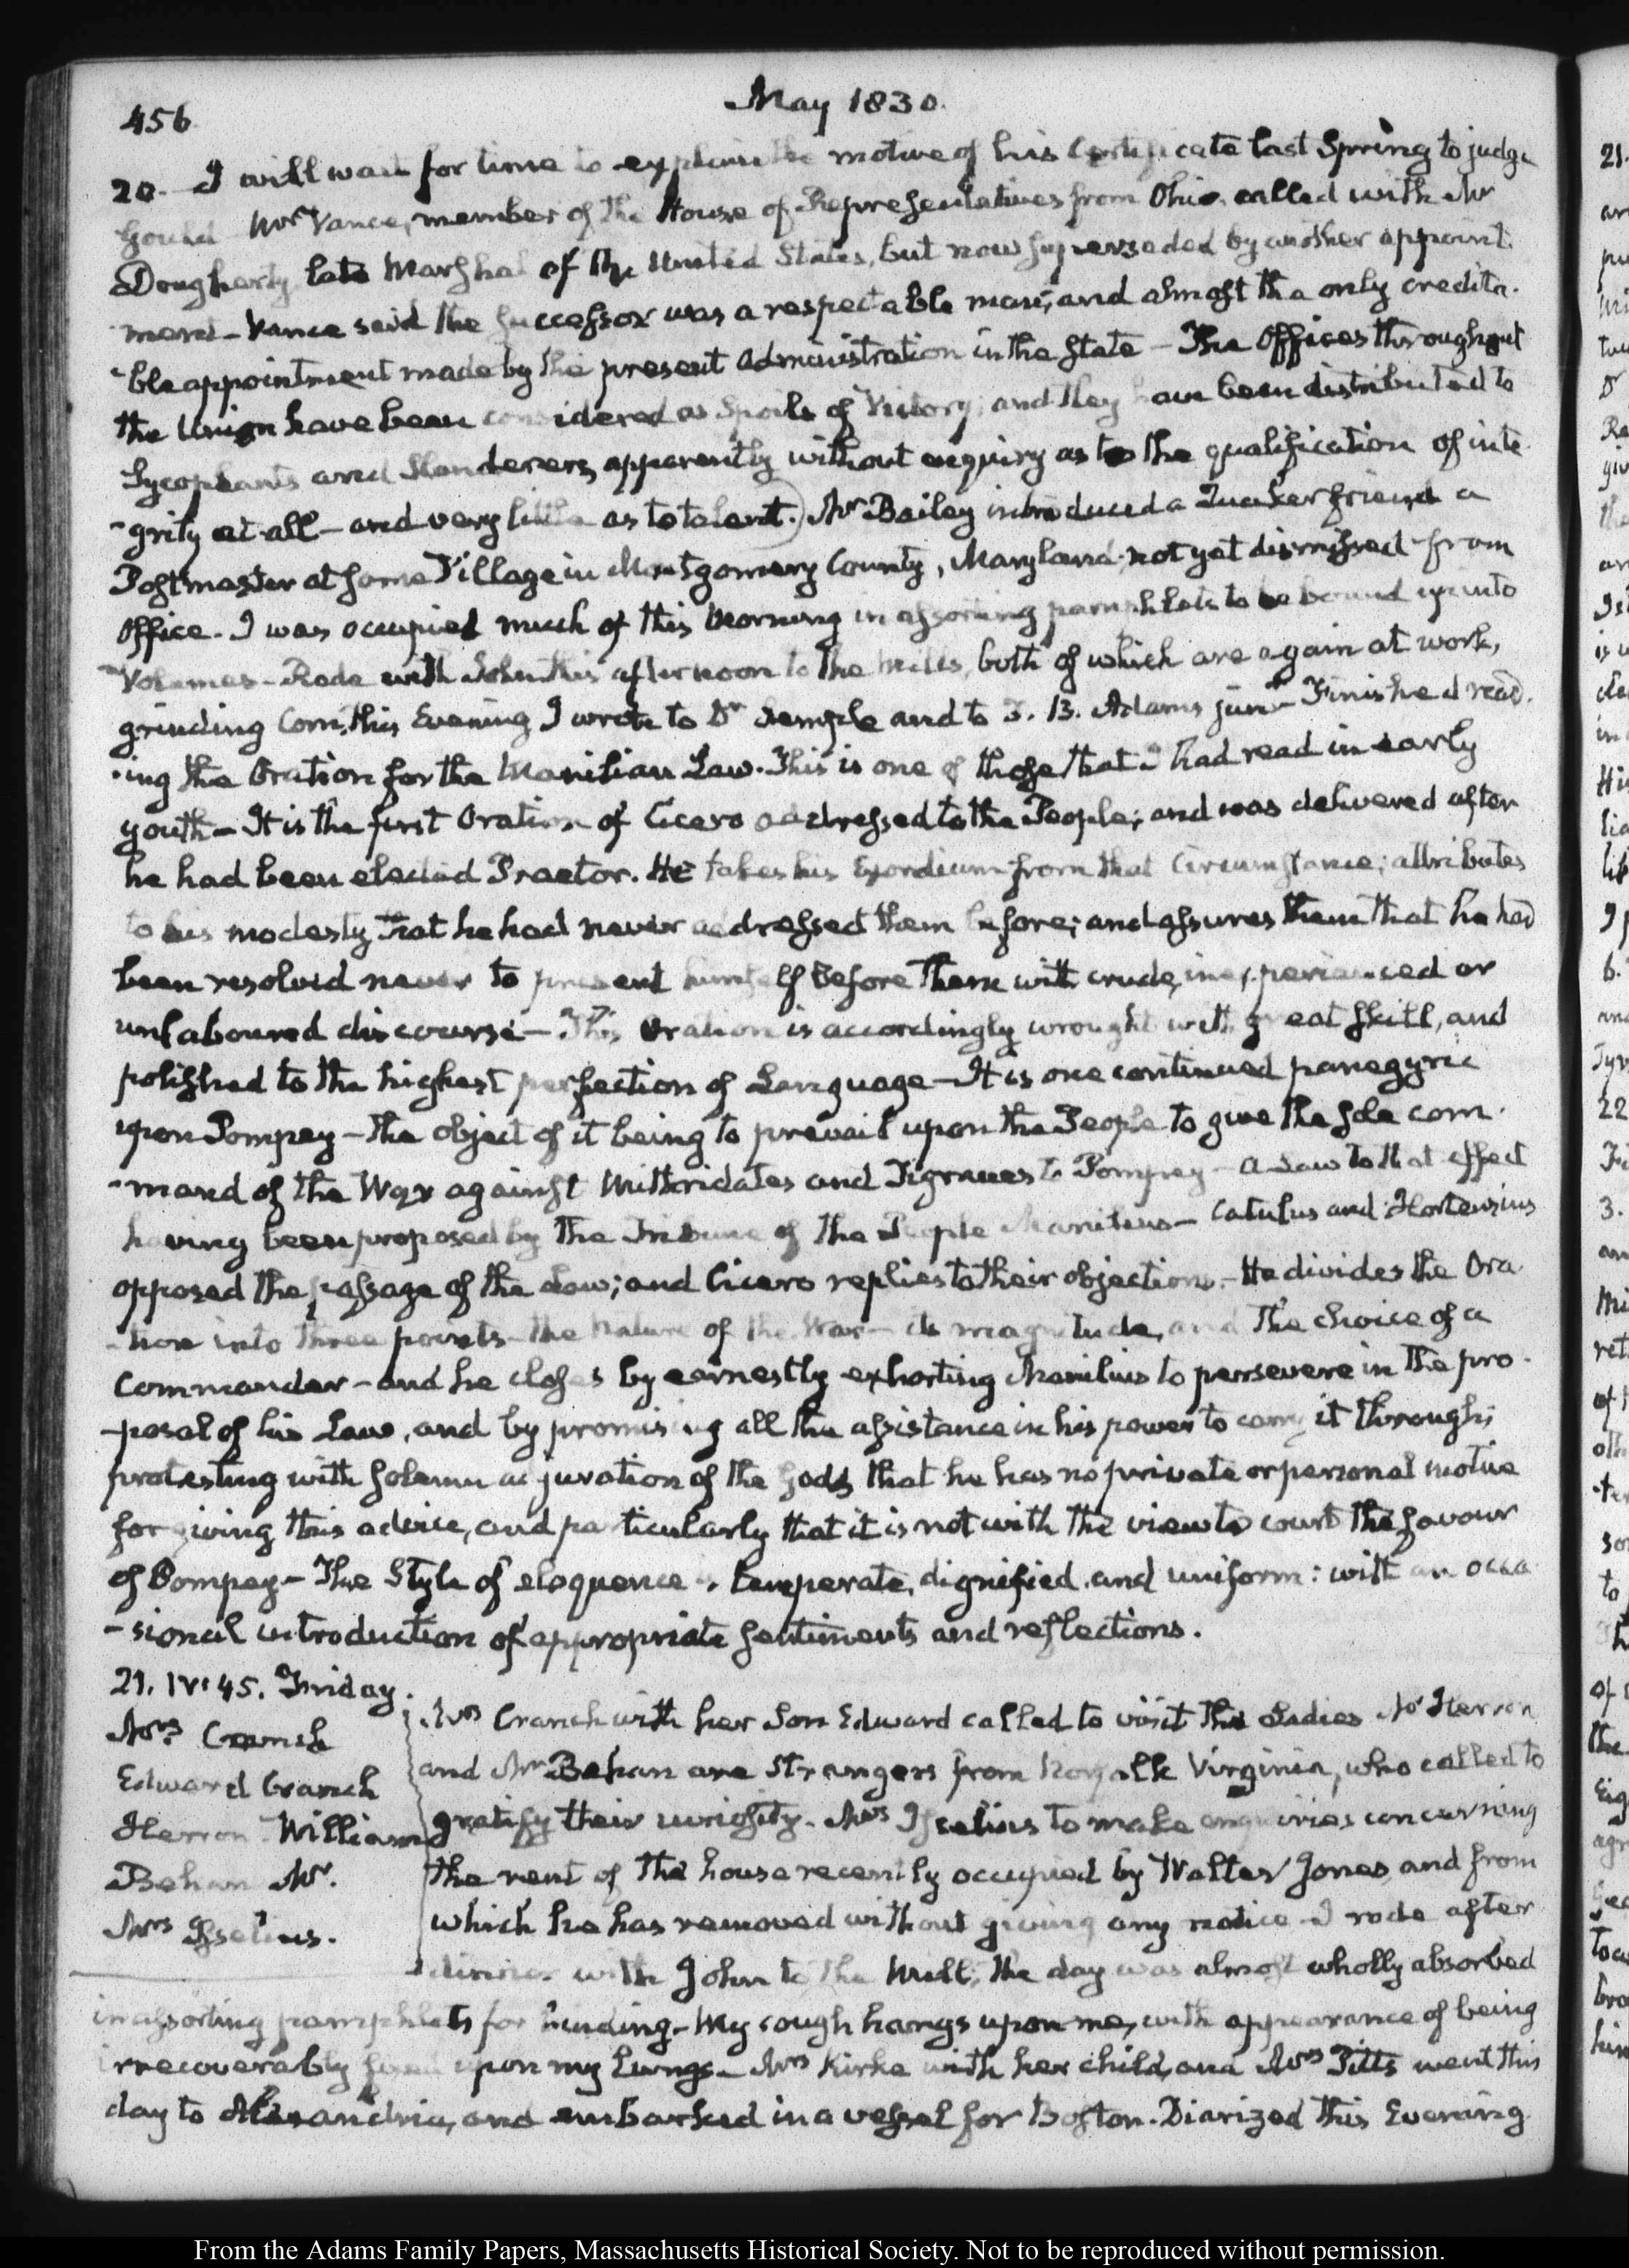 456
May 1830.
20. I will wait for time to explain the motive of his Certificate last Spring to judge
Gould Mr Vance, member of the House of Representatives from Ohio called with Mr
Dougherty late Marshal of the United States, but now superseded by another appoint.
-ment - Vance said the successor was a respectable man, and almost the only credita.
-ble appointment made by the present Administration in the State - The Offices throughout
the Union have been considered as Spoils of Victory; and they have been distributed to
Sycophants and Slanderers, apparently without enquiry as to the qualification of inte
-grity at all - and very little as to talent.) Mr Bailey introduced a Quaker friend a
Postmaster at some Village in Montgomery County, Maryland not yet dismissed from
Office. I was occupied much of this Morning in assorting pamphlets to be bound up into
Volumes - Rode with John this afternoon to the Mills, both of which are again at work,
grinding Corn. This Evening I wrote to Dr Semple and to T. B. Adams junr Finished read.
-ing the Oration for the Manilian Law. This is one of those that I had read in early
youth - It is the first Oration of Cicero addressed to the People; and was delivered after
he had been elected Praetor. He takes his Exordium from that Circumstance; attributes
to his modesty that he had never addressed them before; and assures them that he had
been resolved never to present himself before them with crude, inexperienced or
unlaboured discourse - This Oration is accordingly wrought with great skill, and
polished to the highest perfection of Language - It is one continued panegyric
upon Pompey - the object of it being to prevail upon the People to give the sole com.
-mand of the War against Mithridates and Tigranes to Pompey - a Law to that effect
having been proposed by the Tribune of the People Manilius - Catulus and Hortensius
opposed the passage of the Law; and Cicero replies to their objections. - He divides the Ora
-tion into three points - the Nature of the War - its magnitude, and the choice of a
Commander - and he closes by earnestly exhorting Manilius to persevere in the pro.
-posal of his Law, and by promising all the assistance in his power to carry it through;
protesting with solemn adjuration of the Gods that he has no private or personal motive
for giving this advice, and particularly that it is not with the view to court the favour
of Pompey - The Style of eloquence is temperate, dignified and uniform: with an occa
-sional introduction of appropriate sentiments and reflections.
21. IV: 45. Friday.
Mrs Cranch
Edward Cranch
Herron William
Behan Mr.
Mrs Isselius.
Mrs Cranch with her Son Edward called to visit the Ladies Mr Herron
and Mr Behan are Strangers from Norfolk Virginia, who called to
gratify their curiosity. Mrs Isselius to make enquiries concerning
the rent of the house recently occupied by Walter Jones, and from
which he has removed without giving any notice - I rode after
dinner with John to the Mill; the day was almost wholly absorbed
in assorting pamphlets for binding - My cough hangs upon me, with appearance of being
irrecoverably fixed upon my Lungs - Mrs Kirke with her child, and Mrs Pitts went this
day to Alexandria, and embarked in a vessel for Boston. Diarized this Evening.
From the Adams Family Papers, Massachusetts Historical Society. Not to be reproduced without permission.